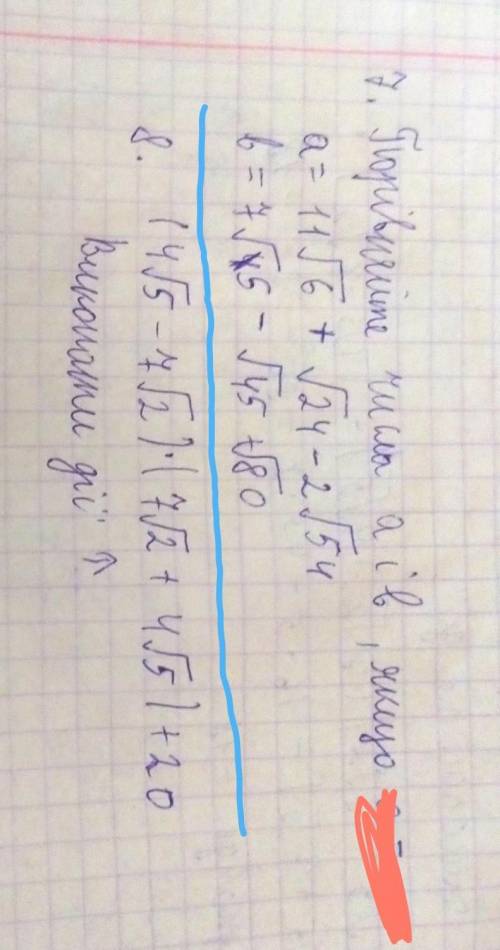 7. Порівняйте числа a і b, якщо
a = 11√6 + √24 - 2√54
b = 7√5 - √45 + √80
8. (4√5 - 7√2)·(7√2 + 4√5) + 20
Виконати дії ↑